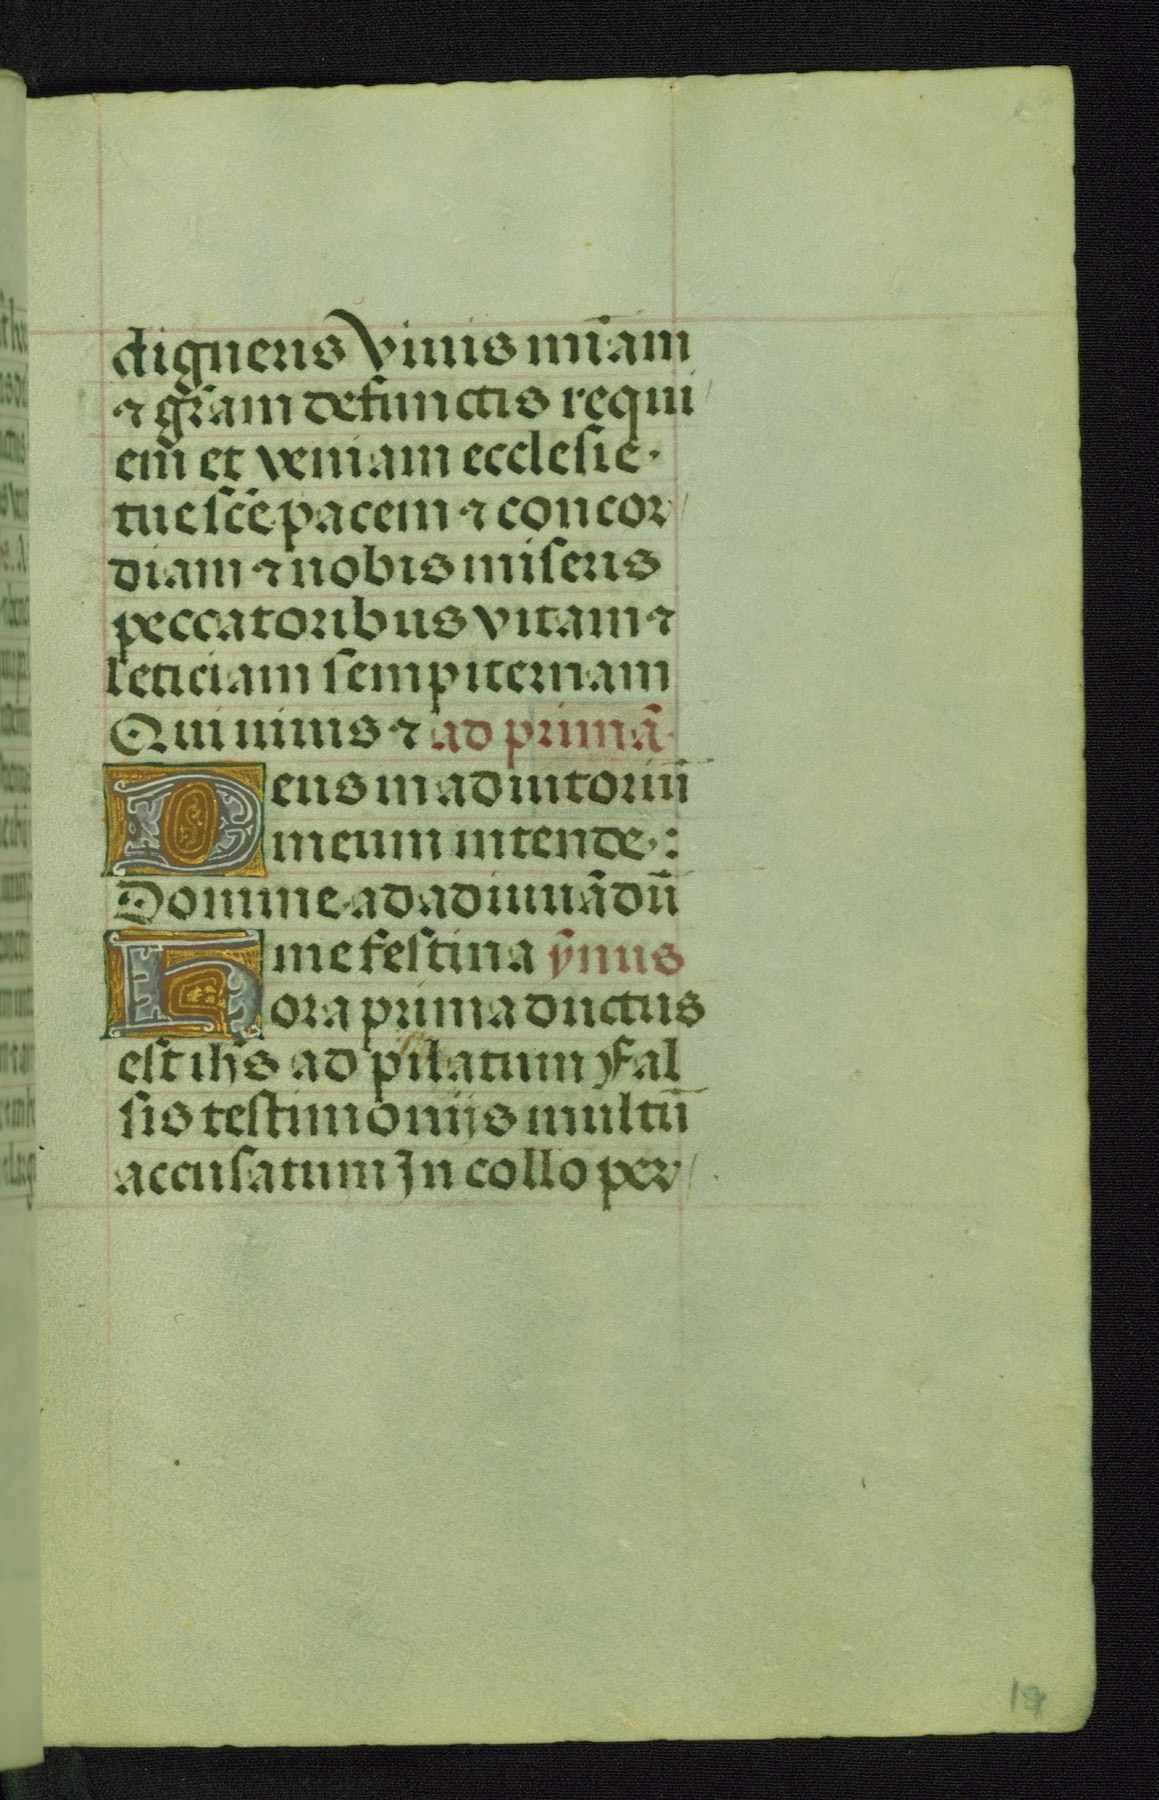 digneris viuis mĩam
⁊ gr̃am defunctis requi
em̃ et veniam ecclesie·
tue sc̃e pacem ⁊ concor
diam ⁊ nobis miseris
peccatoribus vitam ⁊
leticiam sempiternam
Qui uiuis ⁊ ad primã
Deus in adiutoriũ
meum intende:
Domine ad adiuuãdũ
me festina ỹnus
Hora prima ductus
est ihs̃ ad pilatum fal
sis testimonijs multũ
accusatum In collo per
19